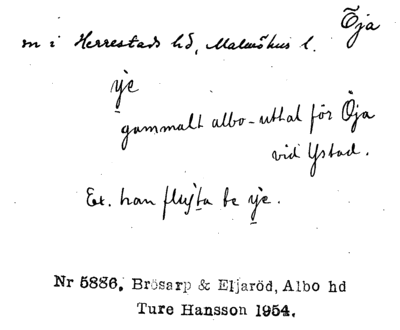 Öja
m i Herrestads hd, Malmöhus l.
yje
gammalt albo-uttal för Öja
vid Ystad.
Ex. han flyjta te yje.
Nr 5886. Brösarp & Eljaröd, Albo hd
Ture Hansson 1954.